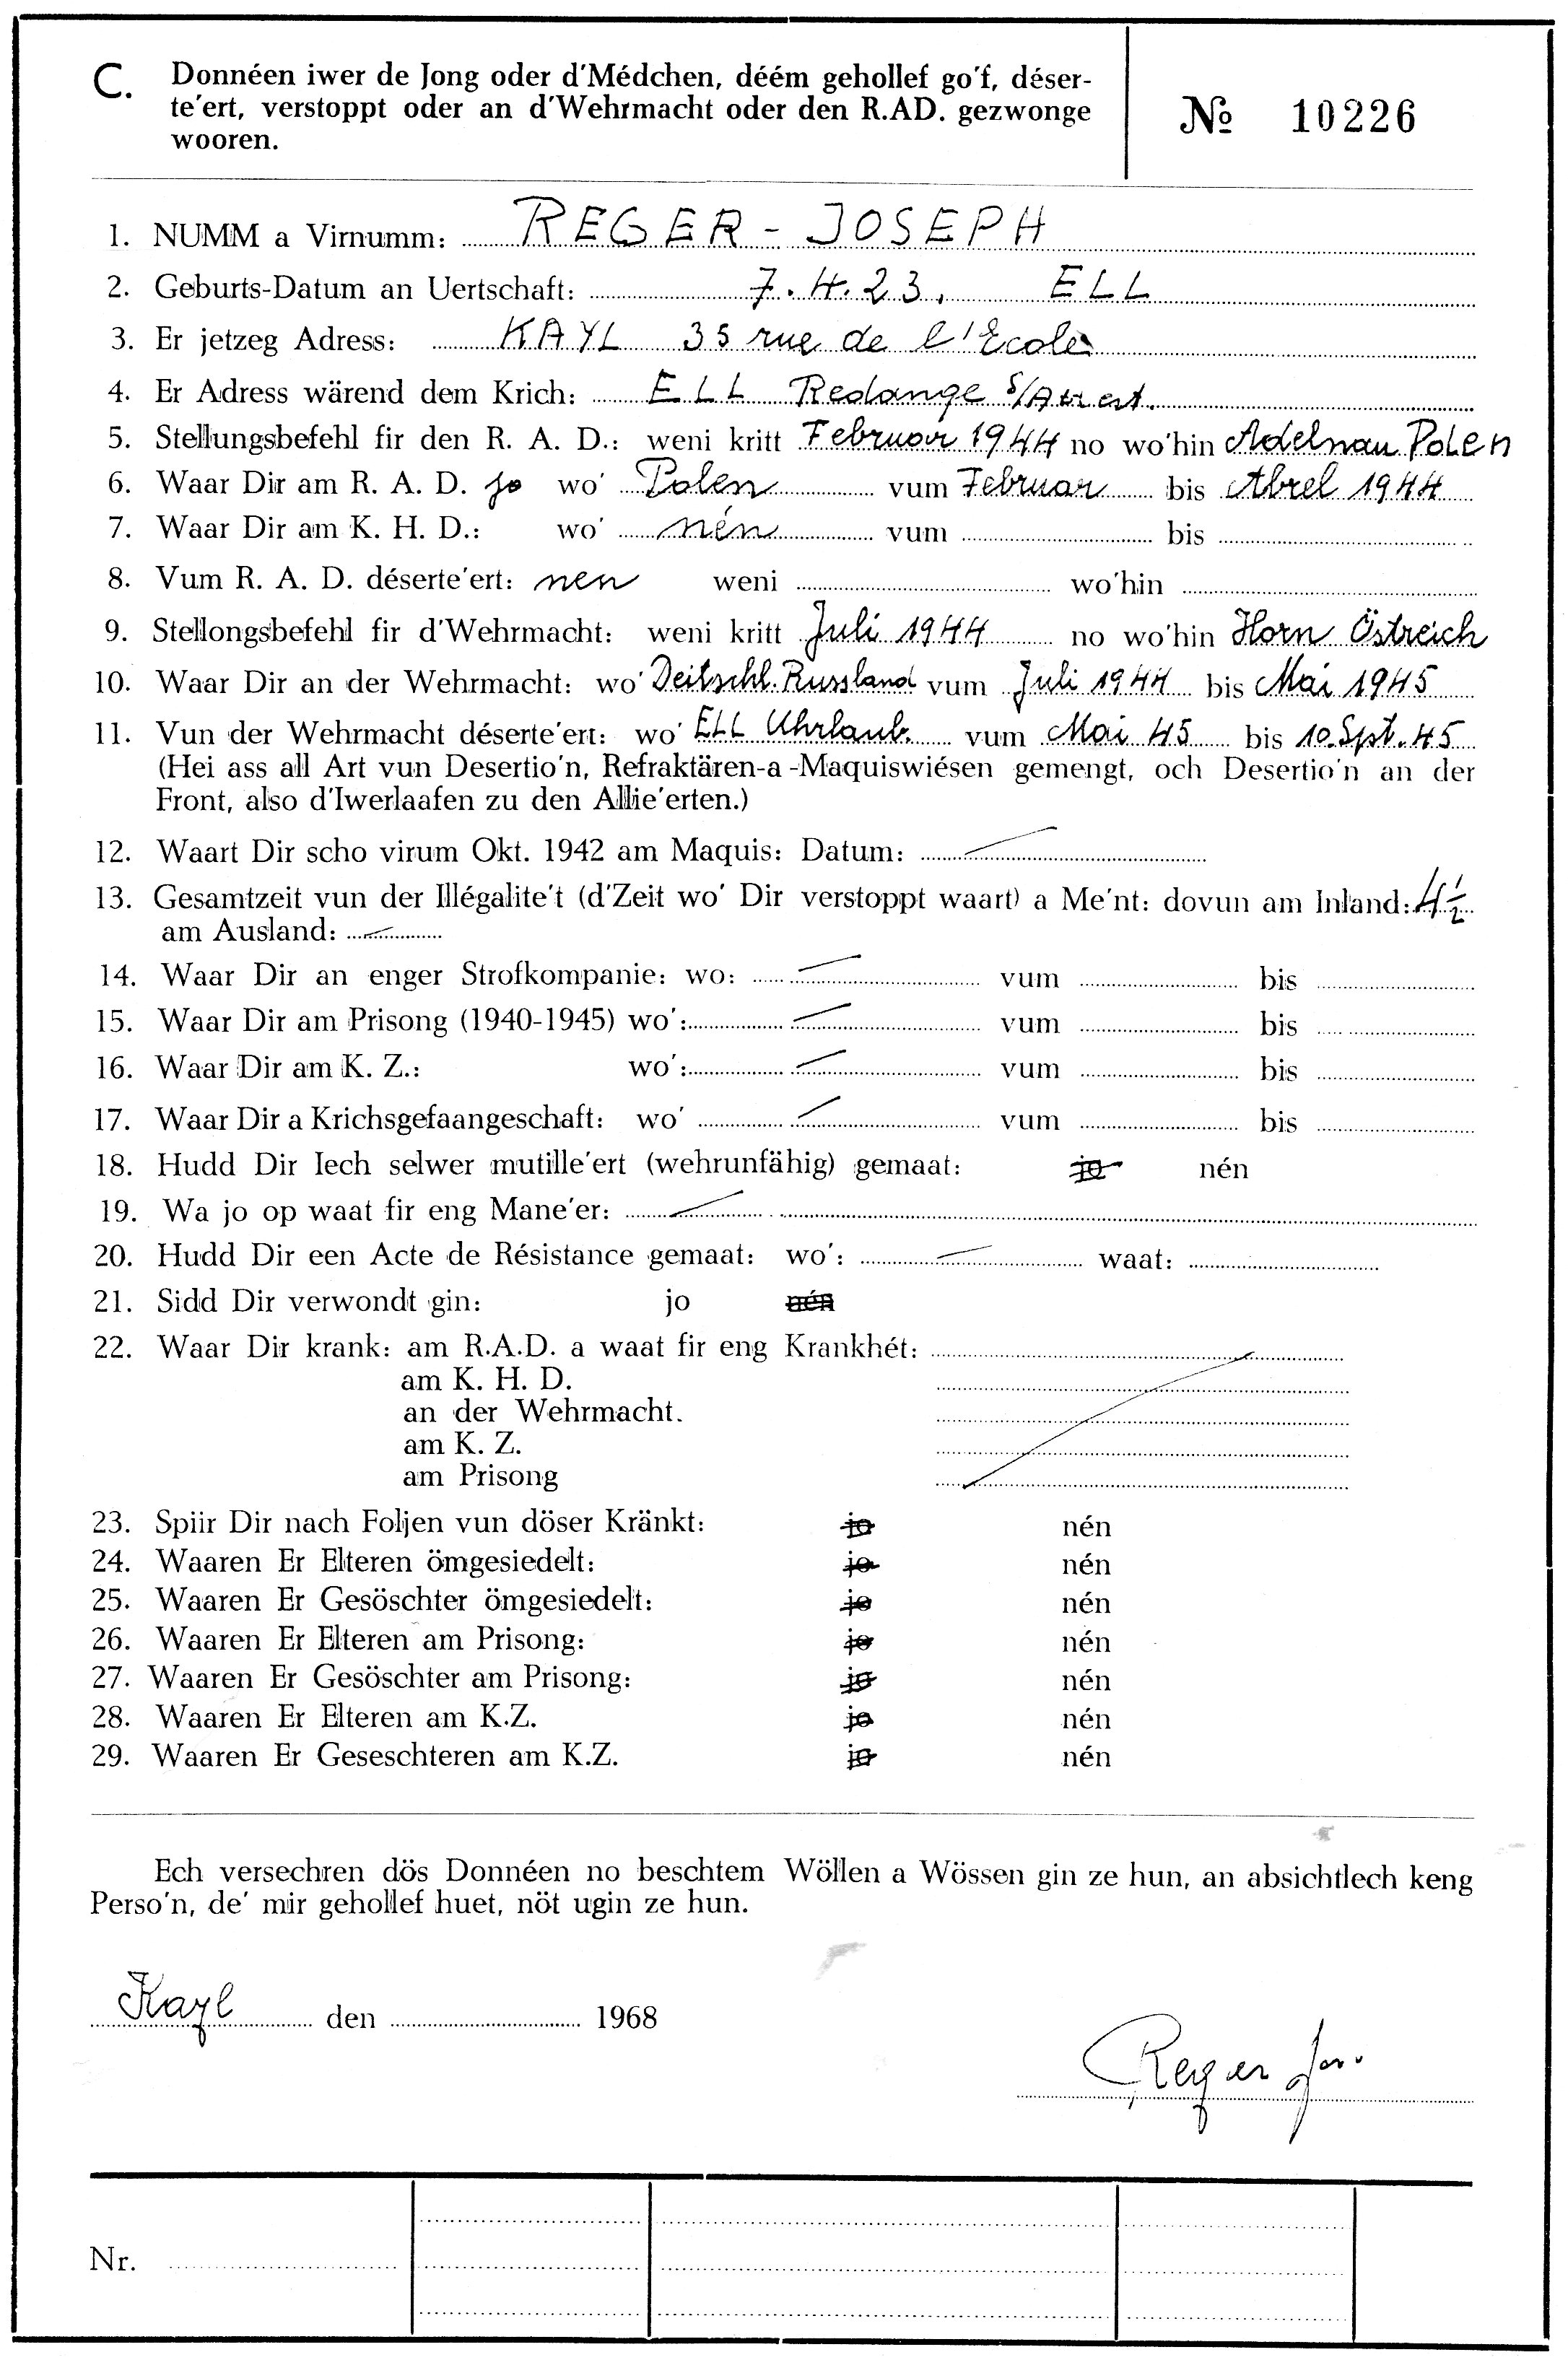 C. Donnéen iwer de Jong oder d'Médchen, déém gehollef go'f, déser-
te'ert, verstoppt oder an d'Wehrmacht oder den R.AD. gezwonge
wooren.
№ 10226
1. NUMM a Virnumm: REGER - JOSEPH
2. Geburts-Datum an Uertschaft: 7.4.23. ELL
3. Er jetzeg Adress: KAYL 35 rue de l'Ecole
4. Er Adress wärend dem Krich: ELL Redange S/Attert.
5. Stellungsbefehl fir den R. A. D.: weni kritt Februar 1944 no wo'hin Adelnau Polen
6. Waar Dir am R. A. D. jo wo' Polen vum Februar bis Abrel 1944
7. Waar Dir am K. H. D.: wo' nén vum bis
8. Vum R. A. D. déserte'ert: nen weni wo'hin
9. Stellongsbefehl fir d'Wehrmacht: weni kritt Juli 1944 no wo'hin Horn Östreich
10. Waar Dir an der Wehrmacht: wo' Deitschl. Russland vum Juli 1944 bis Mai 1945
11. Vun der Wehrmacht déserte'ert: wo' ELL Uhrlaub. vum Mai 45 bis 10. Spt. 45
(Hei ass all Art vun Desertio'n, Refraktären-a-Maquiswiésen gemengt, och Desertio'n an der
Front, also d'Iwerlaafen zu den Allie'erten.)
12. Waart Dir scho virum Okt. 1942 am Maquis: Datum:
13. Gesamtzeit vun der Illégalite't (d'Zeit wo' Dir verstoppt waart) a Me'nt: dovun am Inland: 4½
am Ausland:
14. Waar Dir an enger Strofkompanie: wo: vum bis
15. Waar Dir am Prisong (1940-1945) wo': vum bis
16. Waar Dir am K. Z.: wo': vum bis
17. Waar Dir a Krichsgefaangeschaft: wo' vum bis
18. Hudd Dir Iech selwer mutille'ert (wehrunfähig) gemaat: jo nén
19. Wa jo op waat fir eng Mane'er:
20. Hudd Dir een Acte de Résistance gemaat: wo': waat:
21. Sidd Dir verwondt gin: jo nén
22. Waar Dir krank: am R.A.D. a waat fir eng Krankhét:
am K. H. D.
an der Wehrmacht.
am K. Z.
am Prisong
23. Spiir Dir nach Foljen vun döser Kränkt: jo nén
24. Waaren Er Elteren ömgesiedelt: jo nén
25. Waaren Er Gesöschter ömgesiedelt: jo nén
26. Waaren Er Elteren am Prisong: jo nén
27. Waaren Er Gesöschter am Prisong: jo nén
28. Waaren Er Elteren am K.Z. jo nén
29. Waaren Er Geseschteren am K.Z. jo nén
Ech versechren dös Donnéen no beschtem Wöllen a Wössen gin ze hun, an absichtlech keng
Perso'n, de' mir gehollef huet, nöt ugin ze hun.
Kayl den 1968
Reger Jos.
Nr.